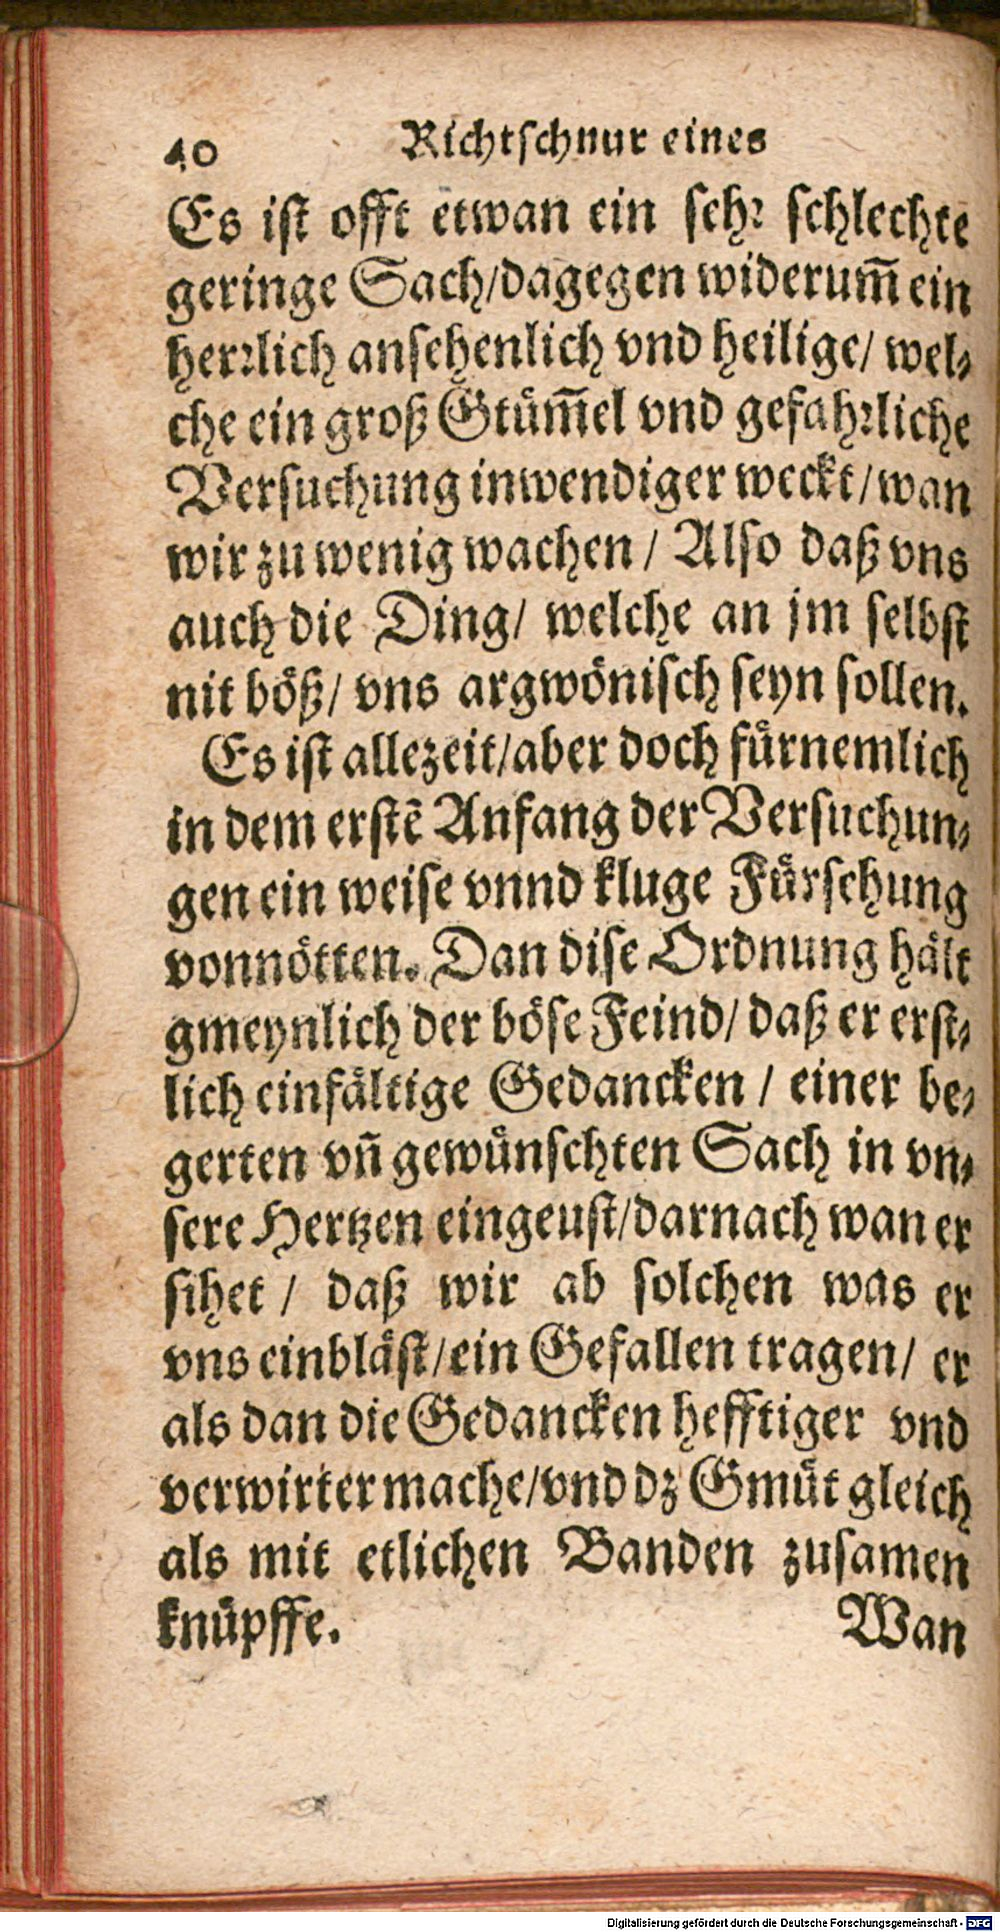 40 Richtschnur eines
Es ist offt etwan ein sehꝛ schlechte
geringe Sach/dagegen widerum̃ ein
herꝛlich ansehenlich vnd heilige/ wel-
che ein groß Gtüm̃el vnd gefahꝛliche
Versuchung inwendiger weckt/wan
wir zu wenig wachen / Also daß vns
auch die Ding/ welche an jm selbst
nit böß/ vns argwönisch seyn sollen.
Es ist allezeit/aber doch fürnemlich
in dem erstẽ Anfang der Versuchun-
gen ein weise vnnd kluge Fürsehung
vonnötten. Dan dise Ordnung hält
gmeynlich der böse Feind/ daß er erst-
lich einfältige Gedancken / einer be-
gerten vñ gewünschten Sach in vn-
sere Hertzen eingeust/darnach wan er
sihet / daß wir ab solchen was er
vns einbläst/ein Gefallen tragen/ er
als dan die Gedancken hefftiger vnd
verwirter mache/vnd dz Gmüt gleich
als mit etlichen Banden zusamen
knüpffe. Wan
Digitalisierung gefördert durch die Deutsche Forschungsgemeinschaft - DFG